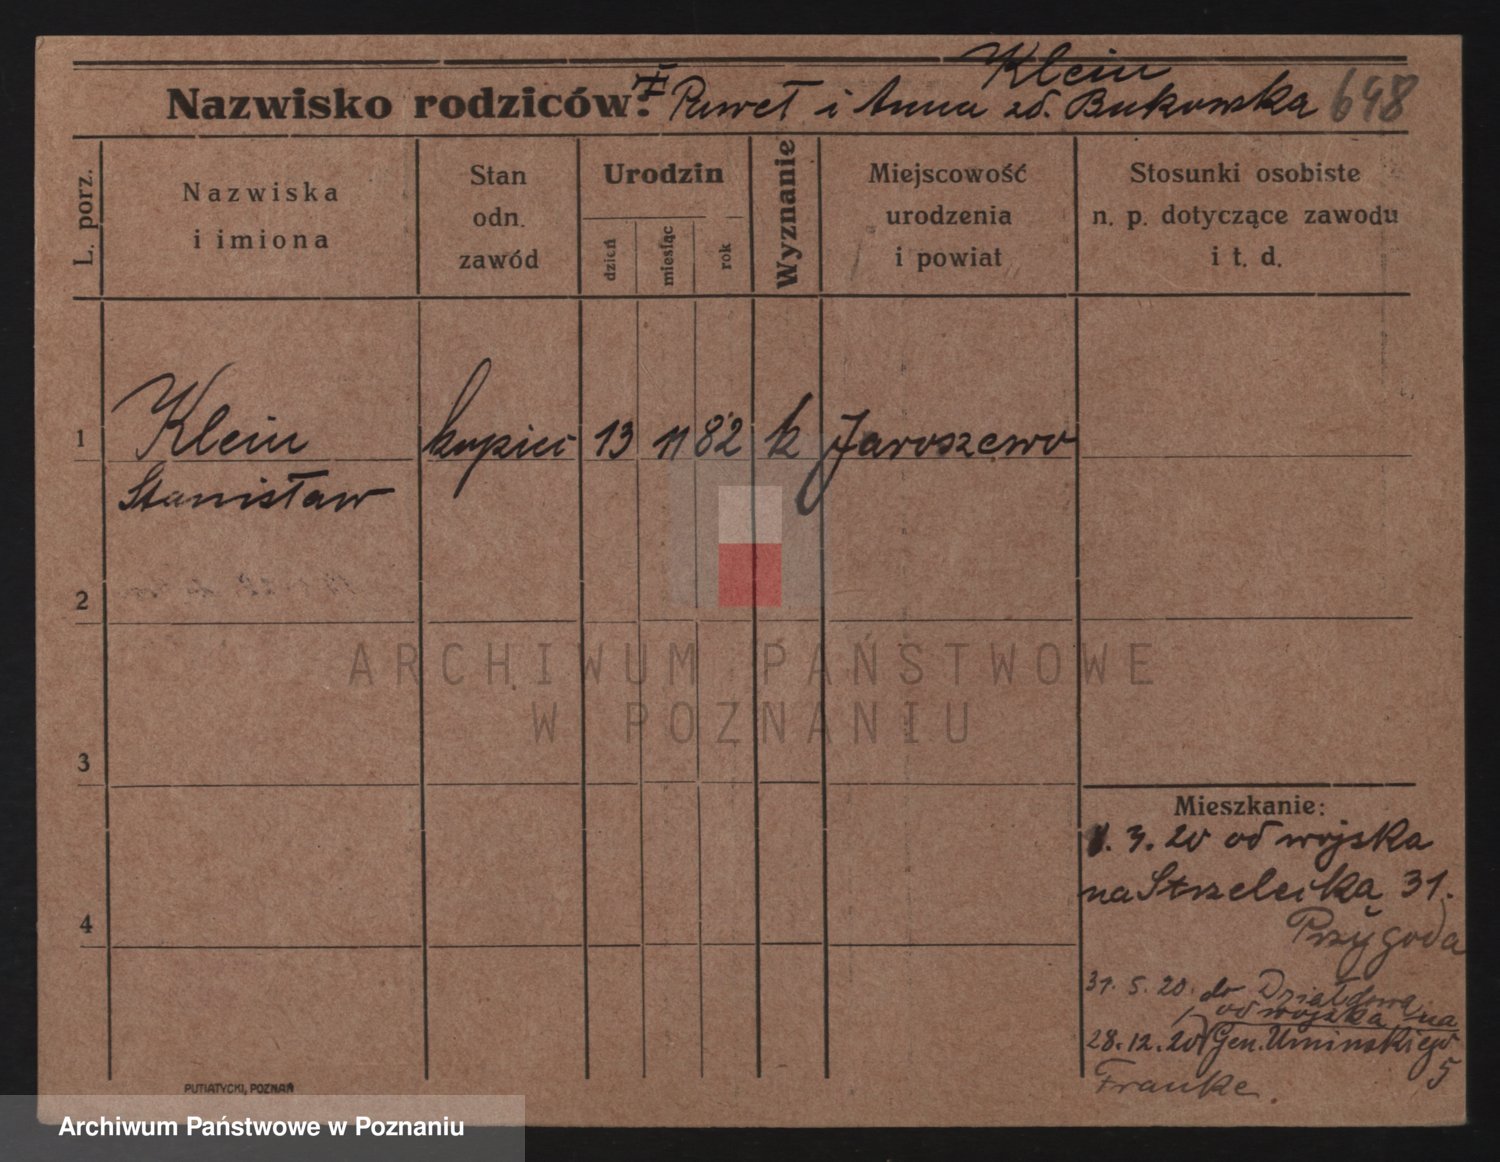 Klein
Nazwisko rodziców: Paweł i Anna zd. Bukowska 648
L. porz.
Nazwiska i imiona
Stan odn. zawód
Urodzin
dzień
miesiąc
rok
Wyznanie
Miejscowość urodzenia i powiat
Stosunki osobiste n. p. dotyczące zawodu i t. d.
1
Klein kupiec 13 11 82 k Jaroszewo
Stanisław
2
ARCHIWUM PAŃSTWOWE
W POZNANIU
3
4
Mieszkanie:
1. 3. 20 od wojska
na Strzelecką 31.
Przygoda
31. 5. 20. do Działdowa
od wojska na
28. 12. 20 Gen. Umińskiego
5
Franke.
PUTIATYCKI, POZNAŃ
Archiwum Państwowe w Poznaniu